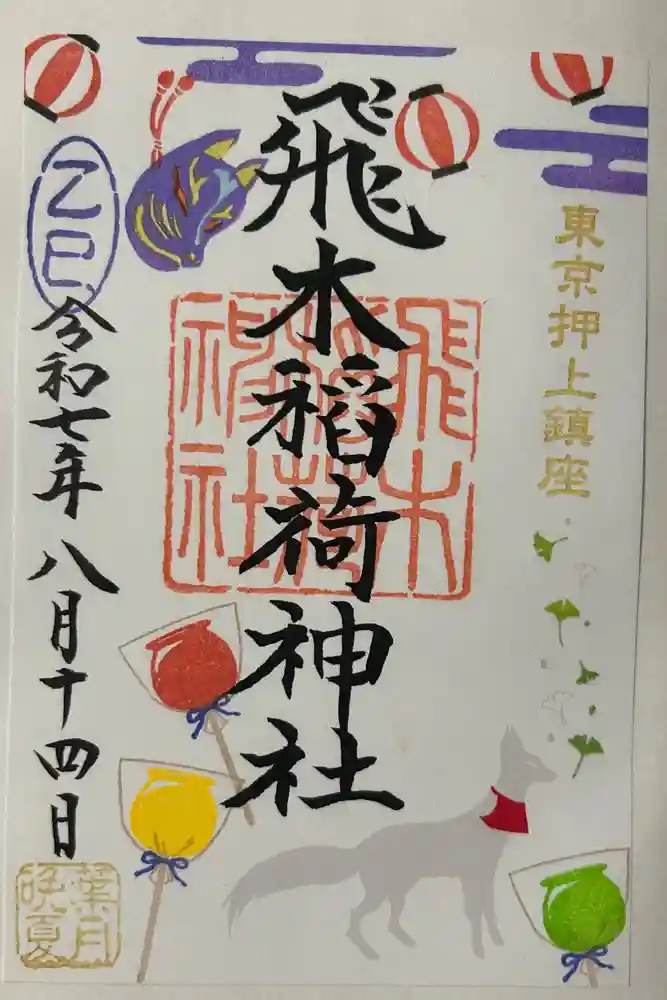 東京押上鎮座
飛木稲荷神社
飛木
稲荷
神社
乙巳
令和七年 八月十四日
葉月
晩夏